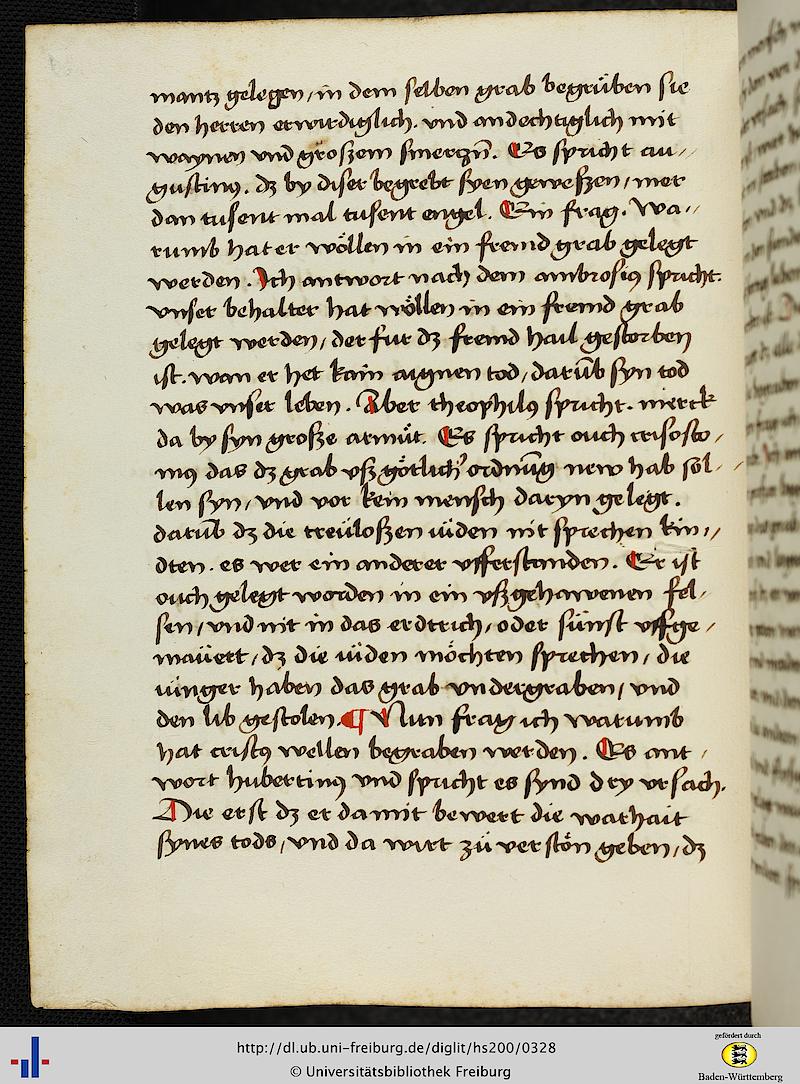 mantz gelegen / in dem selben grab begrůben sie
den herren erwirdiglich. vnd andechtiglich mit
waynen vnd groſzem smerczn̄. Es spricht au //
gustinꝰ. dz by diser begrebt syen geweſzen / mer
dan tusent mal tusent engel. Ein frag. Wa //
rumb hat er wöllen in ein fremd grab gelegt
werden. Ich antwort nach dem ambrosiꝰ spricht.
vnser behalter hat wöllen in ein fremd grab
gelegt werden / der fur dz fremd hail gestorben
ist. wan er het kain aignen tod / darūb syn tod
was vnser leben. Aber theophilꝰ spricht. merck
da by syn groſze armůt. Es spricht ouch crisosto /
mꝰ das dz grab vſz götlicher ordnūg new hab sol /
len syn / vnd vor kein mensch daryn gelegt.
darūb dz die treüloſzen iüden nit sprechen kün //
dten. es wer ein anderer vfferstanden. Er ist
ouch gelegt worden in ein vſzgehawenen fel /
sen / vnd nit in das erdtrich / oder sünst vffge /
mauert / dz die iüden möchten sprechen / die
iünger haben das grab vndergraben / vnd
den lib gestolen. ¶ Nun frag ich warumb
hat cristꝰ wellen begraben werden. Es ant /
wort hubertinꝰ vnd spricht es synd dry vrsach.
Die erst dz er da mit bewert die warhait
synes tods / vnd da wirt zů verstön geben / dz
http://dl.ub.uni-freiburg.de/diglit/hs200/0328
© Universitätsbibliothek Freiburg
gefördert durch
Baden-Württemberg